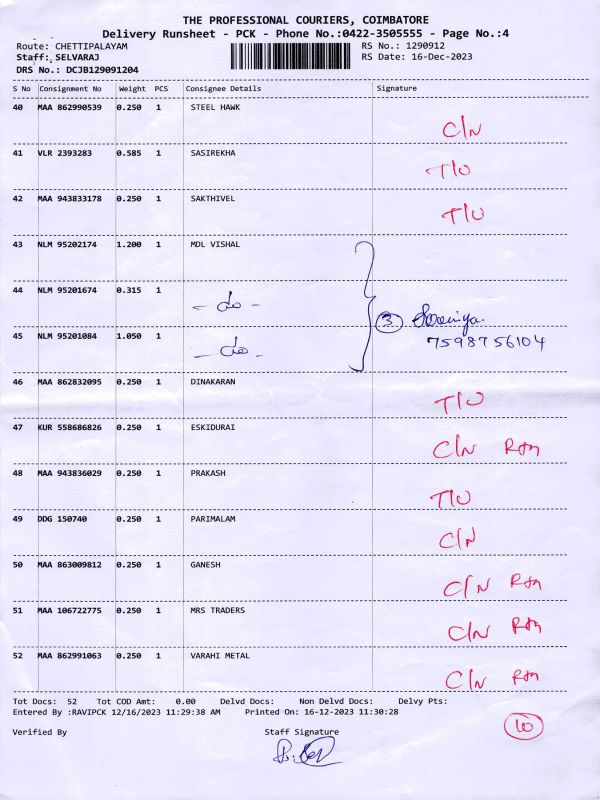 THE PROFESSIONAL COURIERS, COIMBATORE
Delivery Runsheet - PCK - Phone No.:0422-3505555 - Page No.:4
Route: CHETTIPALAYAM RS No.: 1290912
Staff: SELVARAJ RS Date: 16-Dec-2023
DRS No.: DCJB129091204
S No Consignment No Weight PCS Consignee Details Signature
40 MAA 862990539 0.250 1 STEEL HAWK
C/N
41 VLR 2393283 0.585 1 SASIREKHA
T/U
42 MAA 943833178 0.250 1 SAKTHIVEL
T/U
43 NLM 95202174 1.200 1 MDL VISHAL
44 NLM 95201674 0.315 1
- do -
3
45 NLM 95201084 1.050 1
7598756104
- do -
46 MAA 862832095 0.250 1 DINAKARAN
T/U
47 KUR 558686826 0.250 1 ESKIDURAI
C/N
48 MAA 943836029 0.250 1 PRAKASH
T/U
49 DDG 150740 0.250 1 PARIMALAM
C/N
50 MAA 863009812 0.250 1 GANESH
C/N
51 MAA 106722775 0.250 1 MRS TRADERS
C/N
52 MAA 862991063 0.250 1 VARAHI METAL
C/N
Tot Docs: 52 Tot COD Amt: 0.00 Delvd Docs: Non Delvd Docs: Delvy Pts:
Entered By :RAVIPCK 12/16/2023 11:29:38 AM Printed On: 16-12-2023 11:30:28
10
Verified By Staff Signature